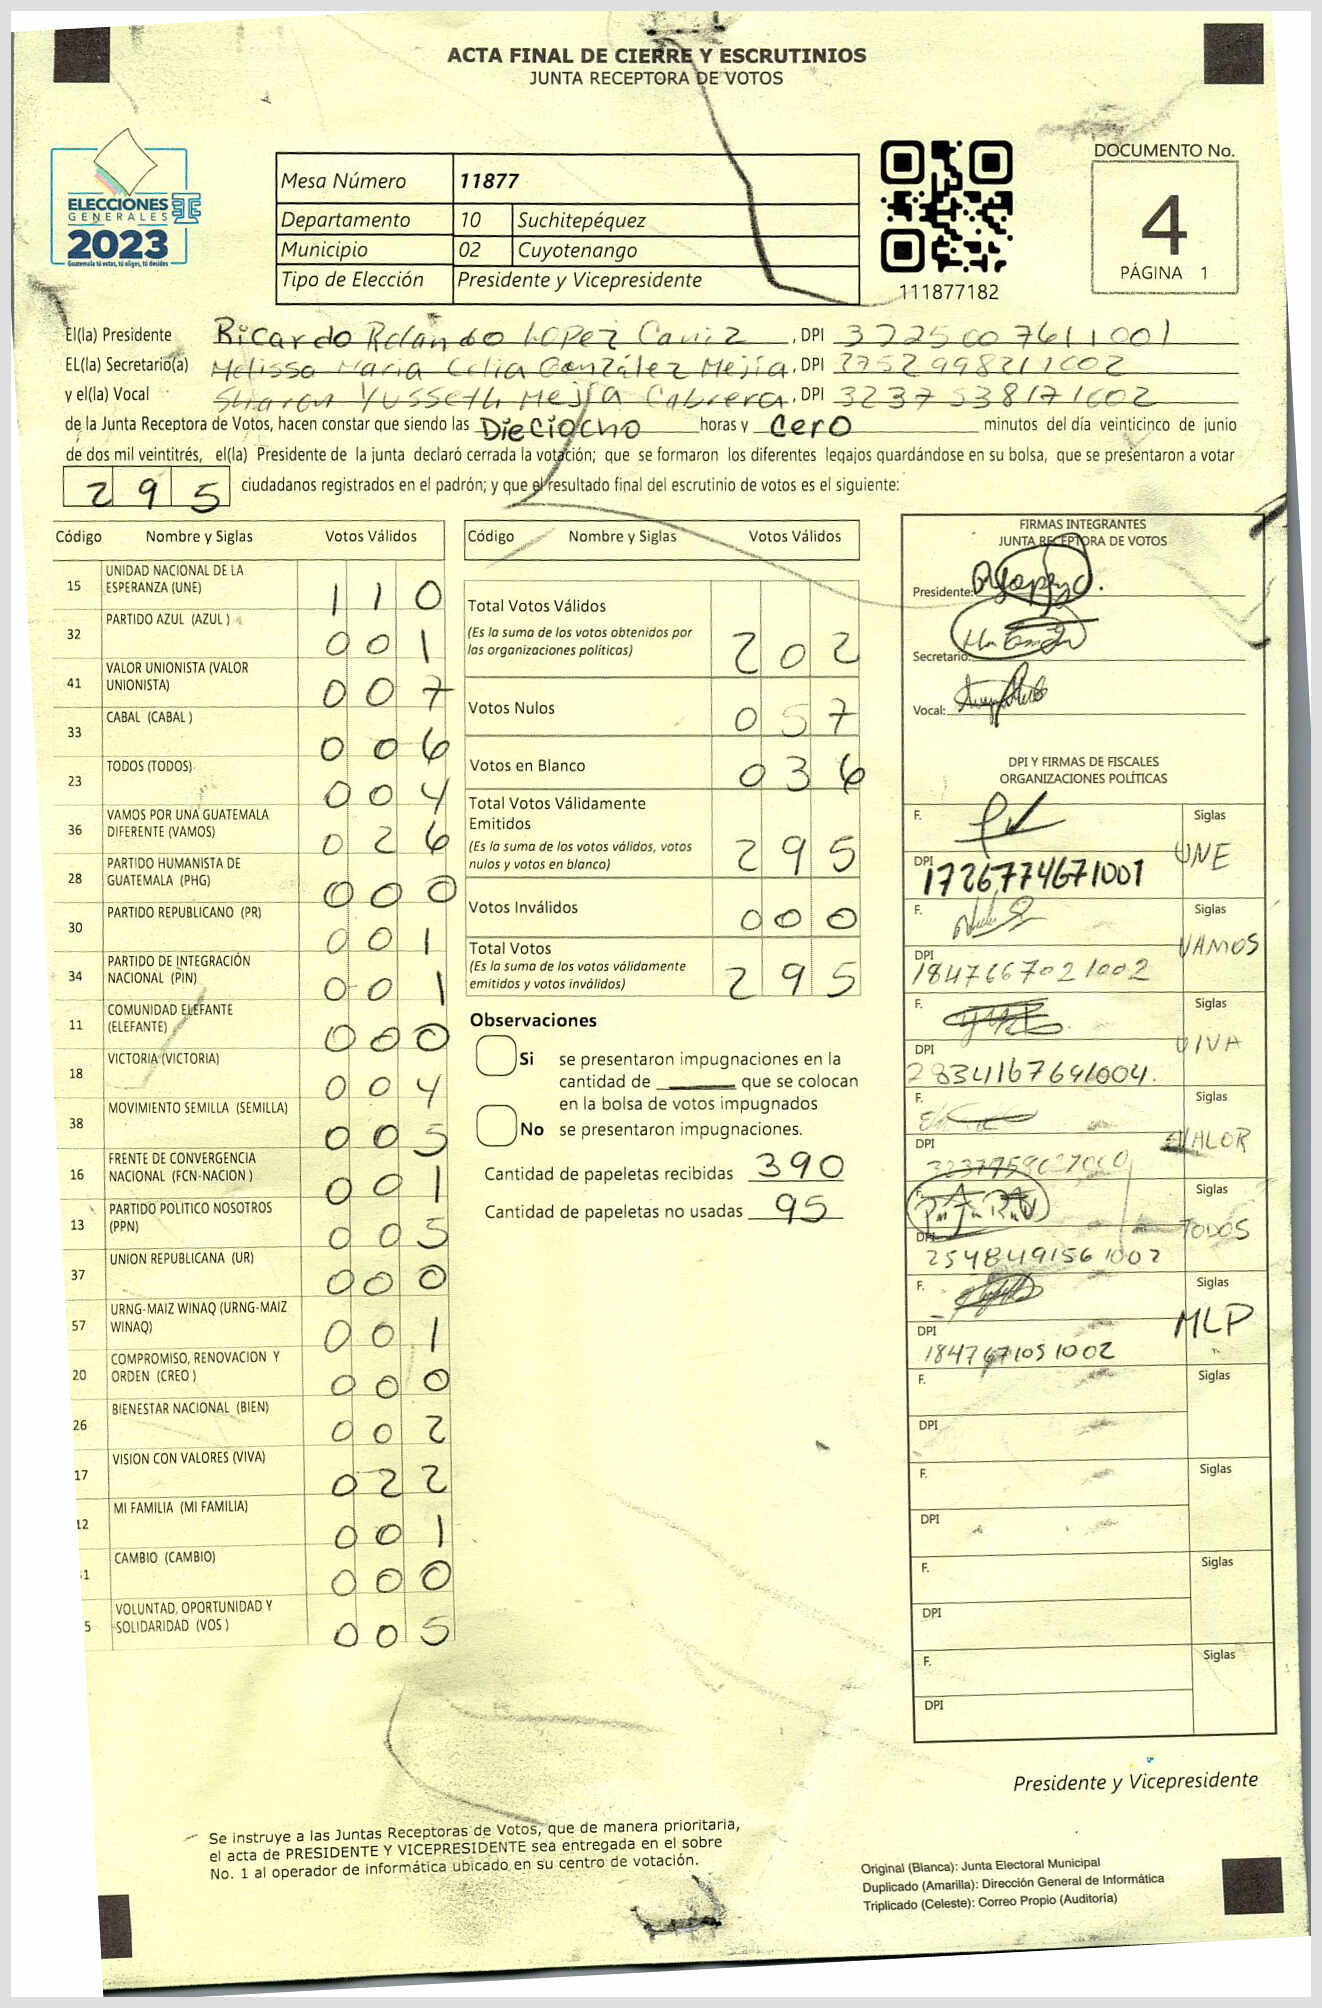 ACTA FINAL DE CIERRE Y ESCRUTINIOS
JUNTA RECEPTORA DE VOTOS
ELECCIONES
GENERALES
2023
Guatemala tú votas, tú eliges, tú decides
Mesa Número 11877
Departamento 10 Suchitepéquez
Municipio 02 Cuyotenango
Tipo de Elección Presidente y Vicepresidente
111877182
DOCUMENTO No.
4
PÁGINA 1
El(la) Presidente Ricardo Rolando Lopez , DPI
EL(la) Secretario(a) Melissa Maria Celia González Mejía , DPI 2752998211002
y el(la) Vocal Sharon Yusseth Mejía Cabrera , DPI 3237538171002
de la Junta Receptora de Votos, hacen constar que siendo las Dieciocho horas y Cero minutos del día veinticinco de junio
de dos mil veintitrés, el(la) Presidente de la junta declaró cerrada la votación; que se formaron los diferentes legajos quardándose en su bolsa, que se presentaron a votar
295 ciudadanos registrados en el padrón; y que el resultado final del escrutinio de votos es el siguiente:
Código Nombre y Siglas Votos Válidos
15 UNIDAD NACIONAL DE LA ESPERANZA (UNE) 110
32 PARTIDO AZUL (AZUL ) 001
41 VALOR UNIONISTA (VALOR UNIONISTA) 007
33 CABAL (CABAL ) 006
23 TODOS (TODOS) 004
36 VAMOS POR UNA GUATEMALA DIFERENTE (VAMOS) 026
28 PARTIDO HUMANISTA DE GUATEMALA (PHG) 000
30 PARTIDO REPUBLICANO (PR) 001
34 PARTIDO DE INTEGRACIÓN NACIONAL (PIN) 001
11 COMUNIDAD ELEFANTE (ELEFANTE) 000
18 VICTORIA (VICTORIA) 004
38 MOVIMIENTO SEMILLA (SEMILLA) 005
16 FRENTE DE CONVERGENCIA NACIONAL (FCN-NACION ) 001
13 PARTIDO POLITICO NOSOTROS (PPN) 005
37 UNION REPUBLICANA (UR) 000
57 URNG-MAIZ WINAQ (URNG-MAIZ WINAQ) 001
20 COMPROMISO, RENOVACION Y ORDEN (CREO ) 000
26 BIENESTAR NACIONAL (BIEN) 002
17 VISION CON VALORES (VIVA) 022
12 MI FAMILIA (MI FAMILIA) 001
1 CAMBIO (CAMBIO) 000
5 VOLUNTAD, OPORTUNIDAD Y SOLIDARIDAD (VOS ) 005
Código Nombre y Siglas Votos Válidos
Total Votos Válidos 202
(Es la suma de los votos obtenidos por
las organizaciones políticas)
Votos Nulos 057
Votos en Blanco 036
Total Votos Válidamente
Emitidos 295
(Es la suma de los votos válidos, votos
nulos y votos en blanco)
Votos Inválidos 000
Total Votos 295
(Es la suma de los votos válidamente
emitidos y votos inválidos)
Observaciones
Si se presentaron impugnaciones en la
cantidad de que se colocan
en la bolsa de votos impugnados
No se presentaron impugnaciones.
Cantidad de papeletas recibidas 390
Cantidad de papeletas no usadas 95
FIRMAS INTEGRANTES
JUNTA RECEPTORA DE VOTOS
Presidente:
Secretario:
Vocal:
DPI Y FIRMAS DE FISCALES
ORGANIZACIONES POLÍTICAS
F. Siglas UNE
DPI 1726774671001
F. Siglas VAMOS
DPI 1847667021002
F. Siglas VIVA
DPI 2834167641004.
F. Siglas VALOR
DPI
F. Siglas TODOS
DPI 2548491561002
F. Siglas MLP
DPI 1847671051002
F. Siglas
DPI
F. Siglas
DPI
F. Siglas
DPI
F. Siglas
DPI
Presidente y Vicepresidente
Se instruye a las Juntas Receptoras de Votos, que de manera prioritaria,
el acta de PRESIDENTE Y VICEPRESIDENTE sea entregada en el sobre
No. 1 al operador de informática ubicado en su centro de votación.
Original (Blanca): Junta Electoral Municipal
Duplicado (Amarilla): Dirección General de Informática
Triplicado (Celeste): Correo Propio (Auditoría)